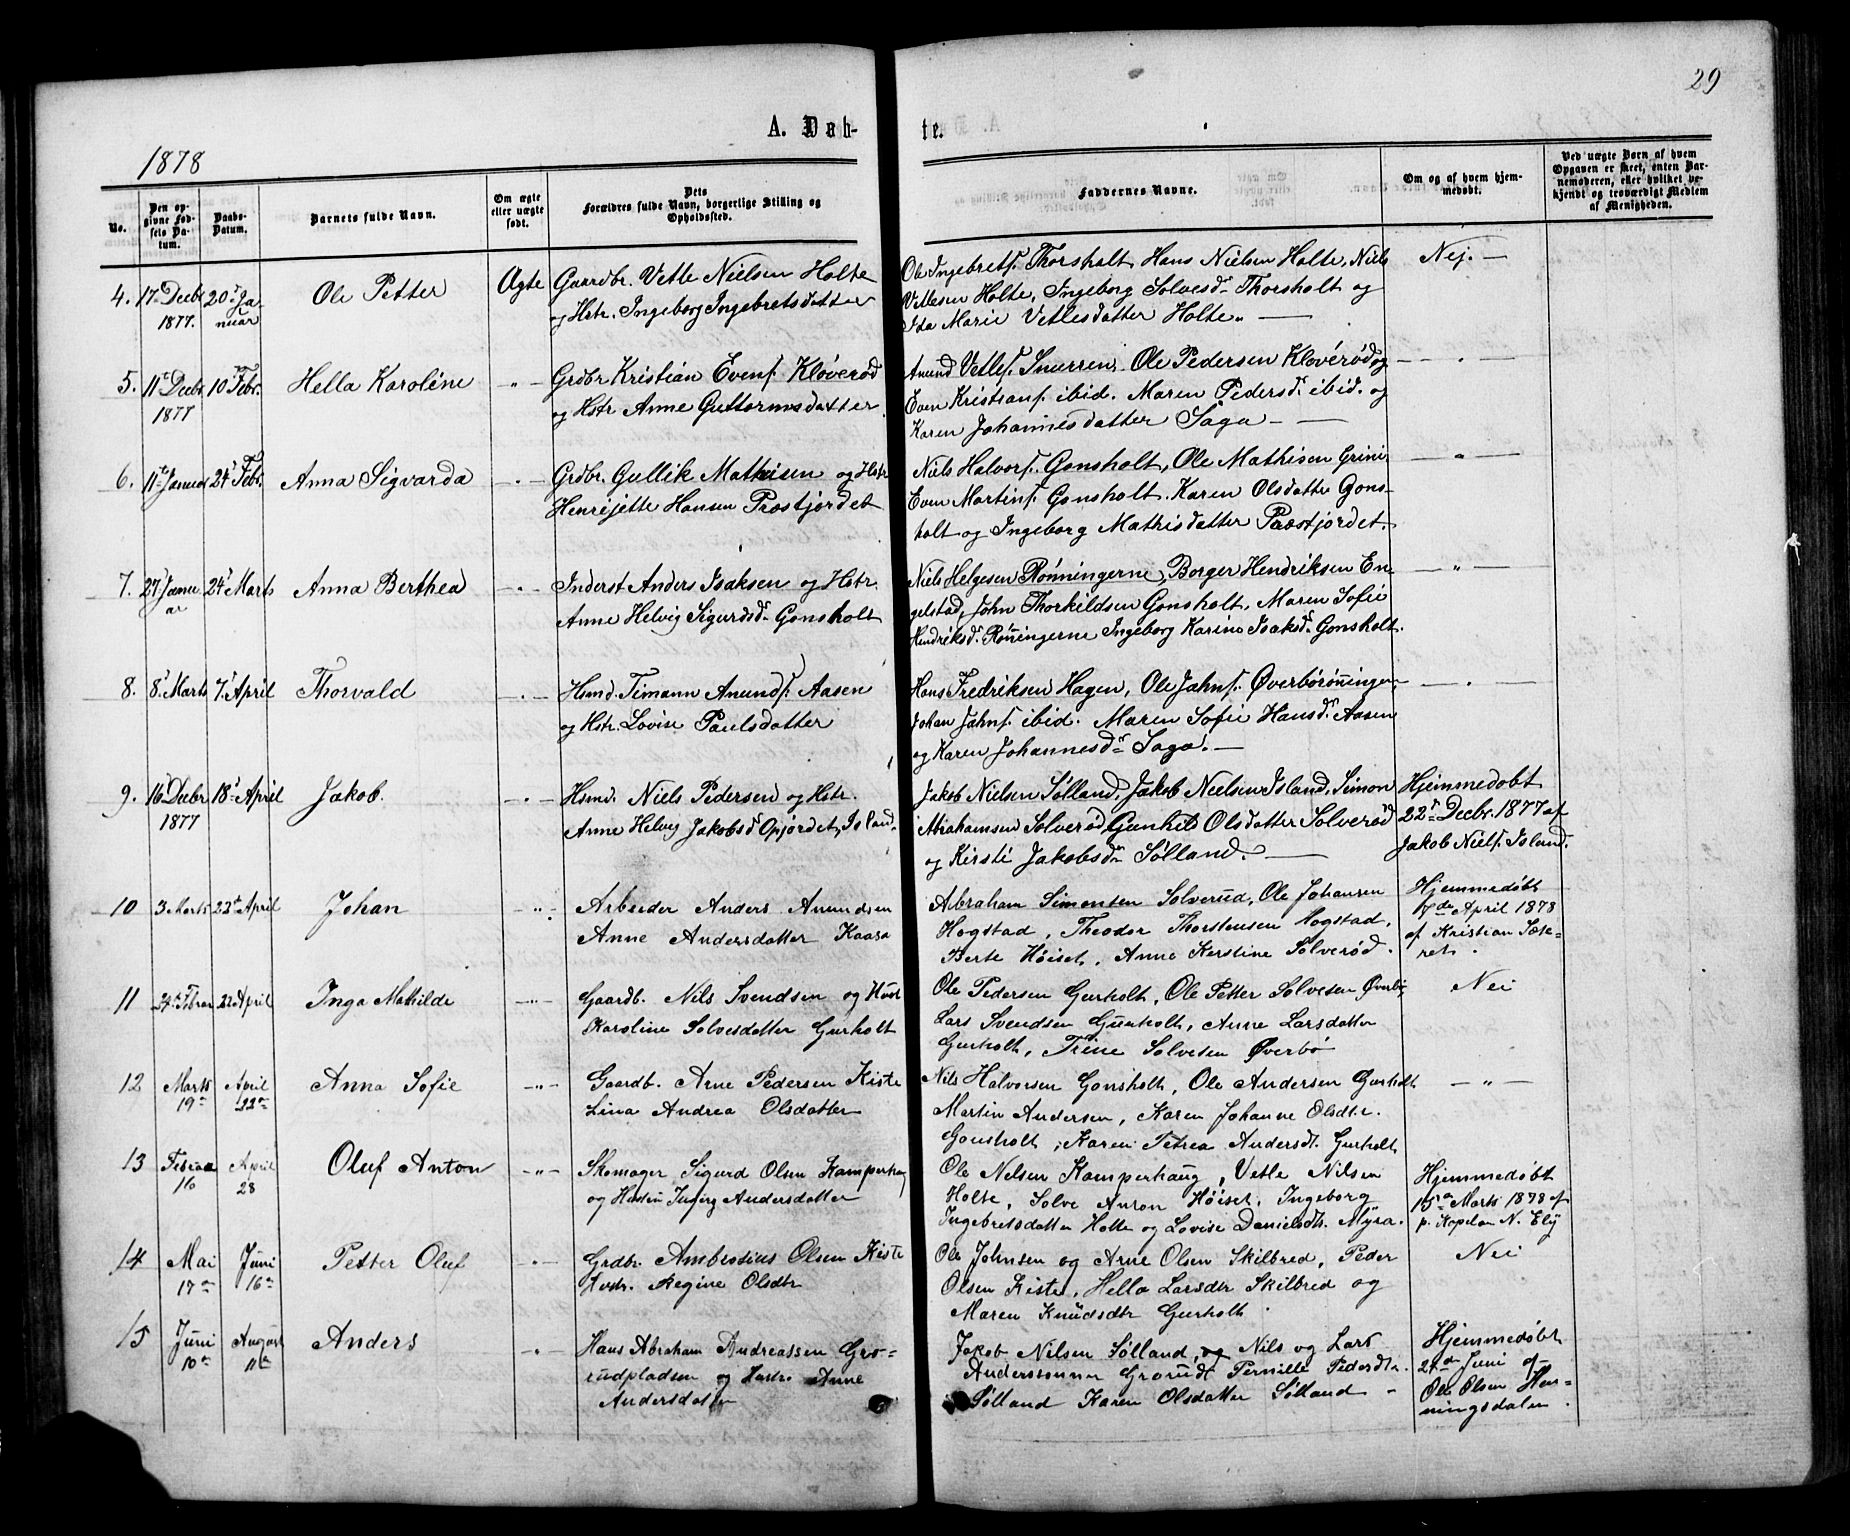 29
A. Døb-
te.
1878
No.
Den op-
givne Fød-
sels Da-
tum.
Daabs-
Datum.
Barnets fulde Navn.
Om ægte
eller uægte
født.
Dets
Forældres fulde Navn, borgerlige Stilling og
Opholdssted.
Faddernes Navne.
Om og af hvem hjem-
medøbt.
Ved uægte Børn af hvem
Opgaven er skeet, enten Bar-
nemoderen, eller hvilket be-
kjendt og troværdigt Medlem
af Menigheden.
4. 17de Decbr 1877. 20de Januar Ole Petter Ægte Gaardbr. Vetle Nielsen Holte
og Hstr. Ingeborg Ingebretsdatter
Ole Ingebretsf. Thorsholt, Hans Nielsen Holte, Niels
Vetlesen Holte, Ingeborg Solvesdr. Thorsholt og
Ida Marie Vetlesdatter Holte. —
Nej. —
5. 11te Decbr 1877 10de Febr. Hella Karoline — " — Grdbr Kristian Evensf. Kløverød
og Hstr Anne Guttormsdatter
Amund Vetlesf. Snurren, Ole Pedersen Kløverød og
Even Kristiansf. ibid. Maren Pedersdr. ibid. og
Karen Johannesdatter Saga — —
— " —
6. 11te Januar 24de Febr. Anna Sigvarda — " — Grdbr. Gullik Mathisen og Hstr
Henrijette Hansen Præstjordet
Niels Halvorsf. Gonsholt, Ole Mathisen Grini
Even Martinsf. Gonsholt. Karen Olsdatter Gons-
holt og Ingeborg Mathisdatter Præstjordet.
— " —
7. 27de Januar 24de Marts Anna Berthea — " — Inderst Anders Isaksen og Hstr.
Anne Helvig Sigurdsdr. Gonsholt
Niels Helgesen Rønningerne, Borger Hendriksen En-
gelstad, John Thorkildsen Gonsholt, Maren Sofie
Hendriksdr. Rønningerne Ingeborg Karine Isaksdr. Gonsholt.
— " —
8. 8de Marts 7de April Thorvald — " — Hsmd. Timann Anundsf. Aasen
og Hstr. Lovise Paulsdatter
Hans Fredriksen Hagen, Ole Jahnsf. Øverbørøningen,
Johan Jahnsf. ibid. Maren Sofie Hansdr. Aasen
og Karen Johannesdr. Saga. —
— " —
9. 16de Decbr 1877 18de April Jakob. — " — Hsmd. Niels Pedersen og Hstr.
Anne Helvig Jakobsdr Opjordet, Island.
Jakob Nielsen Sølland, Jakob Nielsen Island, Simon
Abrahamsen Solverød, Gunhild Olsdatter Solverød
og Kirsti Jakobsdr Sølland. —
Hjemmedøbt
22de Decbr. 1877 af
Jakob Nielsf. Island.
10 3 Marts 22de April Johan — " — Arbeider Anders Anundsen
Anne Andersdatter Kaasa
Abraham Simonsen Solverud, Ole Johansen
Hogstad, Theodor Thorstensen Hogstad,
Berte Høiset, Anne Kerstine Solverød.
Hjemmedøbt
7de April 1878
af Kristian Sæte-
ret.
11 22 April Inga Mathilde — " — Gaardb. Nils Svendsen og Hust
Karoline Solvesdatter Gurholt
Ole Pedersen Gurholt, Ole Petter Solvesen Øverbø,
Lars Svendsen Gurholt, Anne Larsdatter
Gurholt, Trine Solvesen Øverbø
Nei
12 Marts 19de April 22de Anna Sofie — " — Gaardb. Arne Pedersen Kiste
Lina Andrea Olsdatter
Nils Halvorsen Gonsholt, Ole Andersen Gurholt
Martin Andersen, Karen Johanne Olsdtr.
Gonsholt, Karen Petrea Andersdt. Gurholt
— " —
13 Februar 16 April 28 Oluf Anton — " — Skomager Sigurd Olsen Kamperhaug
og Hustru Ingeborg Andersdatter
Ole Nelsen Kamperhaug, Vetle Nilsen
Holte, Solve Anton Høiset, Ingeborg
Ingebretsdatter Holte og Lovise Danielsdt. Myra.
Hjemmedøbt
15de Marts 1878 af
p. Kapelan N. Ely
14 Mai 17de Juni 16de Petter Oluf — " — Grdbr. Ambrosius Olsen Kiste
Hustr. Regine Olsdtr
Ole Johnsen og Arne Olsen Skilbred, Peder
Olsen Kiste, Hella Larsdtr Skilbred og
Maren Knudsdtr Gurholt.
Nei
15 Juni 10de August 11te Anders — " — Hans Abraham Andreassen Gro-
rudpladsen og Hustr. Anne
Andersdatter
Jakob Nilsen Sølland, og Nils og Lars
Anderssønner Grorud Pernille Pedersdtr.
Sølland Karen Olsdatter Sølland —
Hjemmedøbt
24de Juni af
Ole Olsen Hen-
ningsdalen.